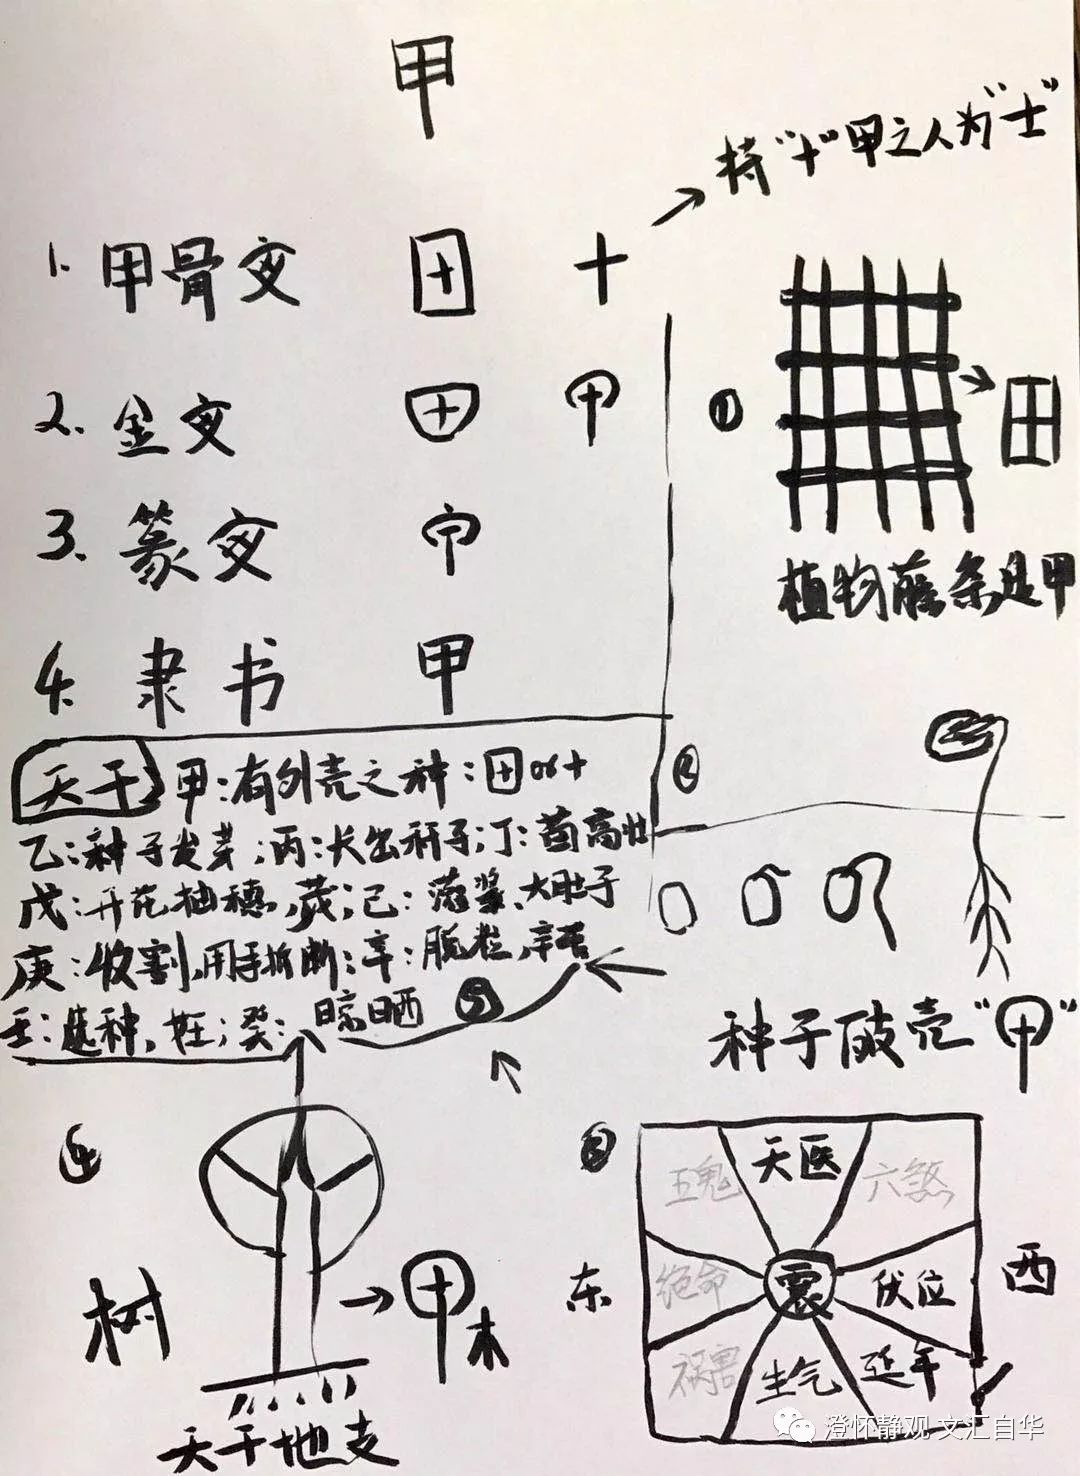 甲
持“十”甲之人为“士”
1. 甲骨文 十
2. 金文 甲
3. 篆文
4. 隶书 甲
① 田
植物藤条是甲
天干 甲:有外壳之种:田or十
乙:种子发芽;丙:长出秆子;丁:苗高壮
戊:开花抽穗,茂;己:灌浆、大肚子
庚:收割,用手折断;辛:脱粒,辛苦
壬:选种,妊;癸:晾晒
②
种子破壳“甲”
⑤
④
树
甲木
天干地支
③
五鬼 天医 六煞
东 绝命 震 伏位 西
祸害 生气 延年
澄怀静观 文汇自华